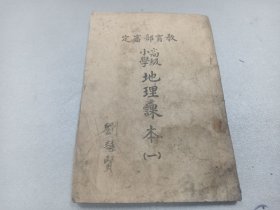 教育部審定
高級
小學
地理課本
(一)
劉